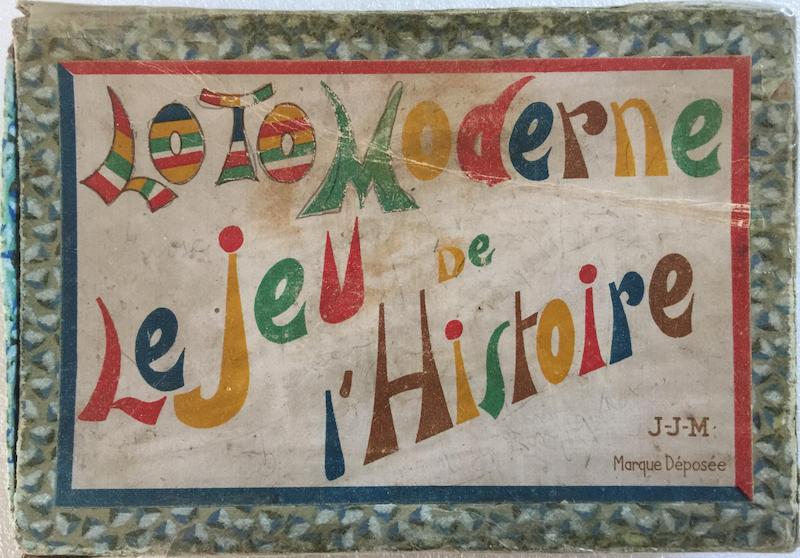 LOTO Moderne
Le jeu DE
l'Histoire
J-J-M
Marque Déposée